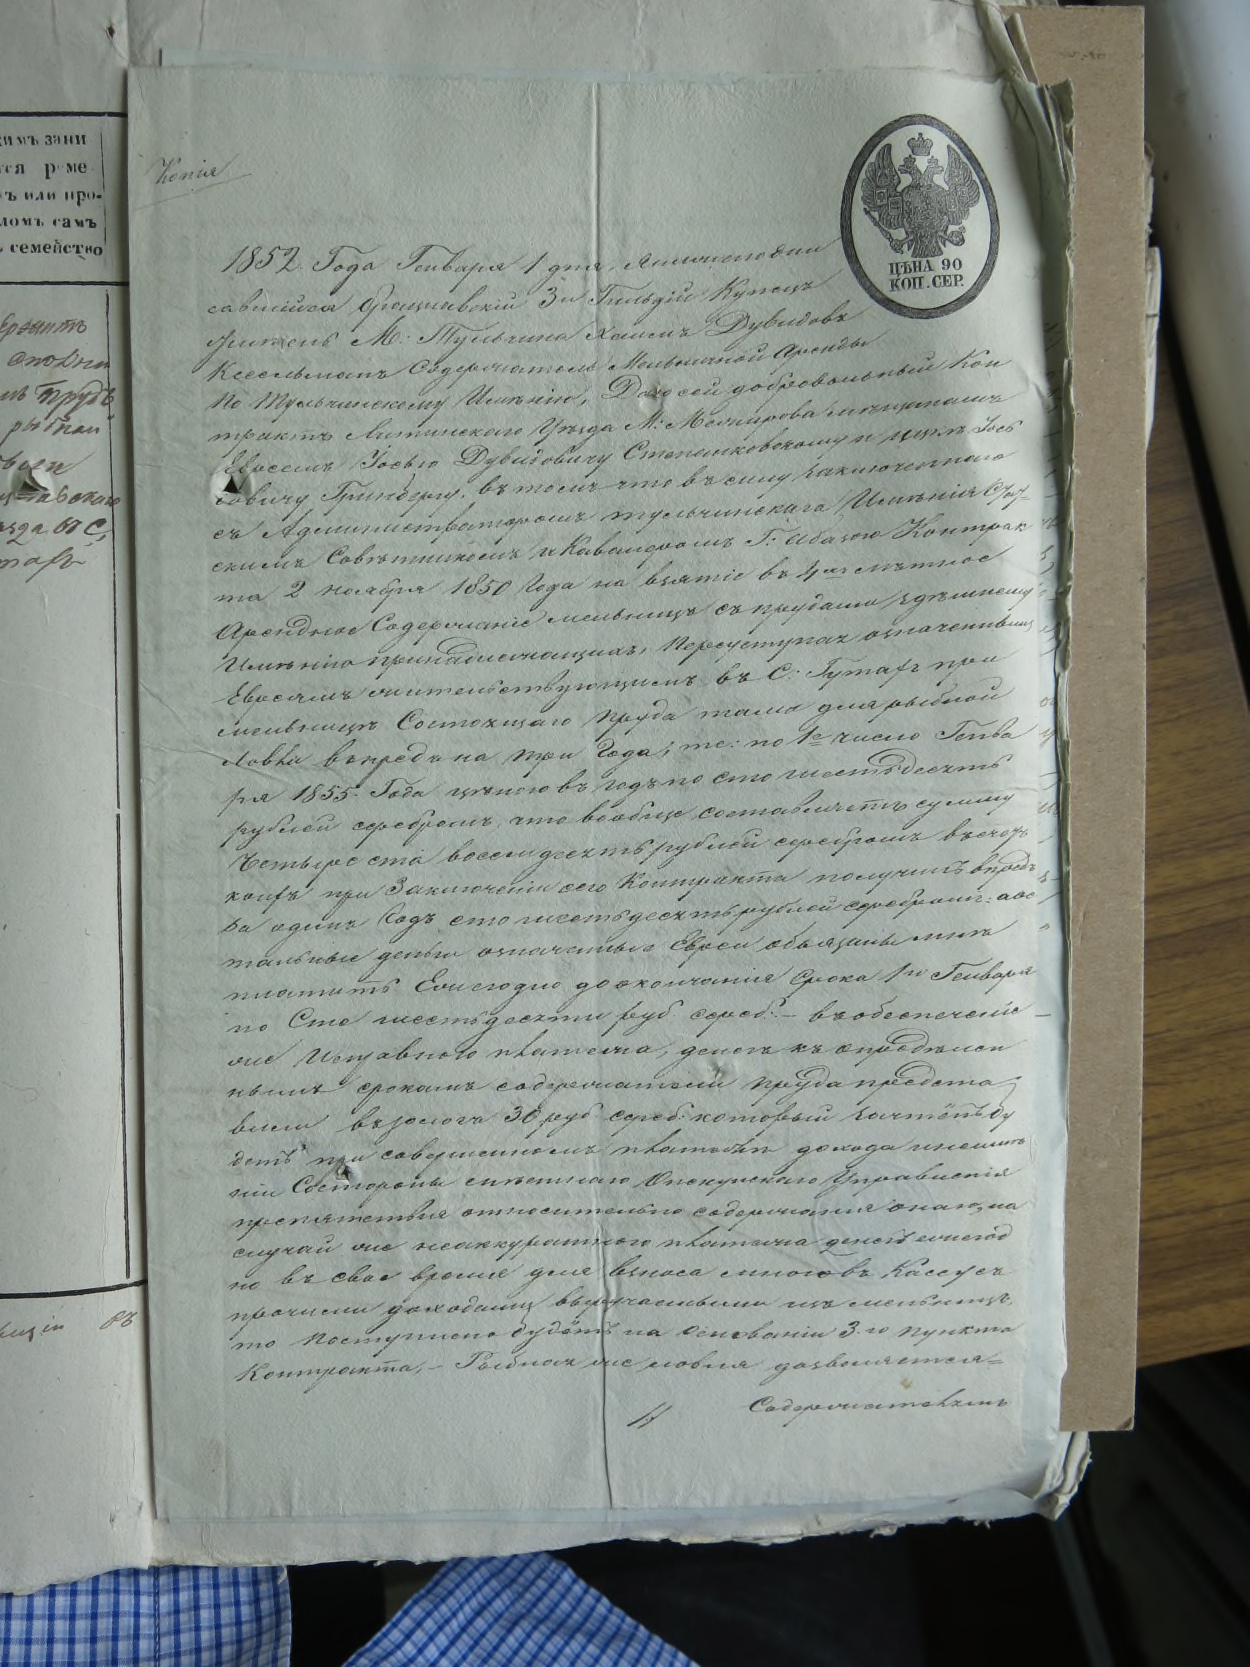 кимъ зани
тся реме
ъ или про-
ломъ самъ
ъ семейство
Копія
ЦѢНА 90
КОП. СЕР.
1852 Года Генваря 1 дня,
савшійся 3й Гильдіи Купецъ
житель М: Тульчина Хаимъ Дувидовъ
Кесельманъ Содержатель Мельничной Аренды
По Тульчинскому Имѣнію, Далъ сей добровольный Кон
трактъ Литинскаго Уѣзда М: Межирова мещанамъ
Евреямъ Іосью Дувидовичу Степанковскому и Іось
овичу Гринбергу, въ томъ что въ силу заключеннаго
съ Администраторомъ Тульчинскаго Имѣнія Стат-
скимъ Совѣтникомъ и Кавалеромъ Г: Абазою Контрак
та 2 ноября 1850 Года на взятіе въ 4хъ лѣтное
Арендное Содержаніе мельницъ съ прудами здѣшнему
Имѣнію принадлежащихъ, Переуступаю означеннымъ
Евреямъ жительствующимъ въ С: при
мельницѣ Состоящаго пруда тамо для рыбной
Ловли впредь на три Года, те: по 1е число Генва
ря 1855 Года цѣною въ годъ по сто шестьдесятъ
рублей серебромъ, что вообще составляетъ сумму
Четыреста восемдесятъ рублей серебромъ въ счетъ
коихъ при Заключеніи сего Контракта получилъ впредь
за одинъ Годъ сто шестьдесятъ рублей серебромъ: а ос
тальные деньги означенные Евреи обязаны мнѣ
платить Ежегодно до окончанія Срока 1го Генваря
по Сто шестьдесяти руб: сереб: – въ обезпеченіе
же Исправного платежа, денегъ къ опредѣлен
нымъ срокамъ содержатели пруда предста
вили въ залогъ 30 руб сереб: который зачтёнъ бу
детъ при совершенномъ платежѣ дохода
ніи Состороны Опекунскаго Управленія
препятствія относительно содержанія онаго, на
случай же неаккуратного платежа денегъ ежегод
но въ свое время для взноса мною въ Кассу съ
прочими доходами выручаемыми изъ мельницъ,
то Поступлено будётъ на Основаніи 3.го пункта
Контракта, – Рыбная же ловля дозволяется=
Содержателямъ